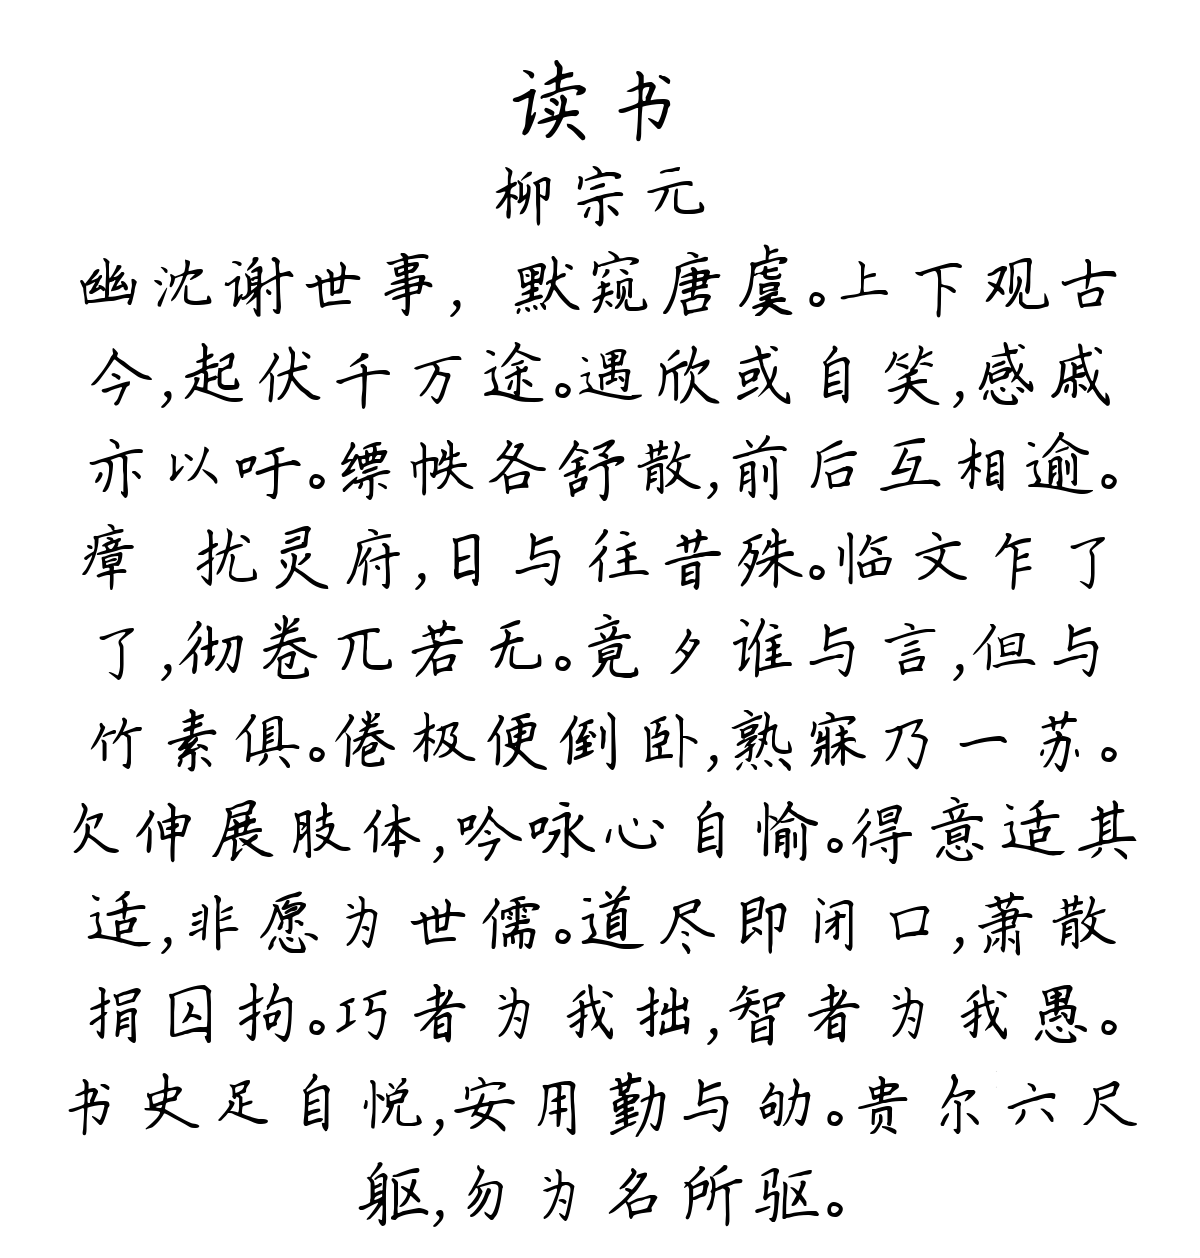 读书
柳宗元
幽沈谢世事，默窥唐虞。上下观古
今,起伏千万途。遇欣或自笑,感戚
亦以吁。缥帙各舒散,前后互相逾。
瘴 扰灵府,日与往昔殊。临文乍了
了,彻卷兀若无。竟夕谁与言,但与
竹素俱。倦极便倒卧,熟寐乃一苏。
欠伸展肢体,吟咏心自愉。得意适其
适,非愿为世儒。道尽即闭口,萧散
捐囚拘。巧者为我拙,智者为我愚。
书史足自悦,安用勤与劬。贵尔六尺
躯,勿为名所驱。